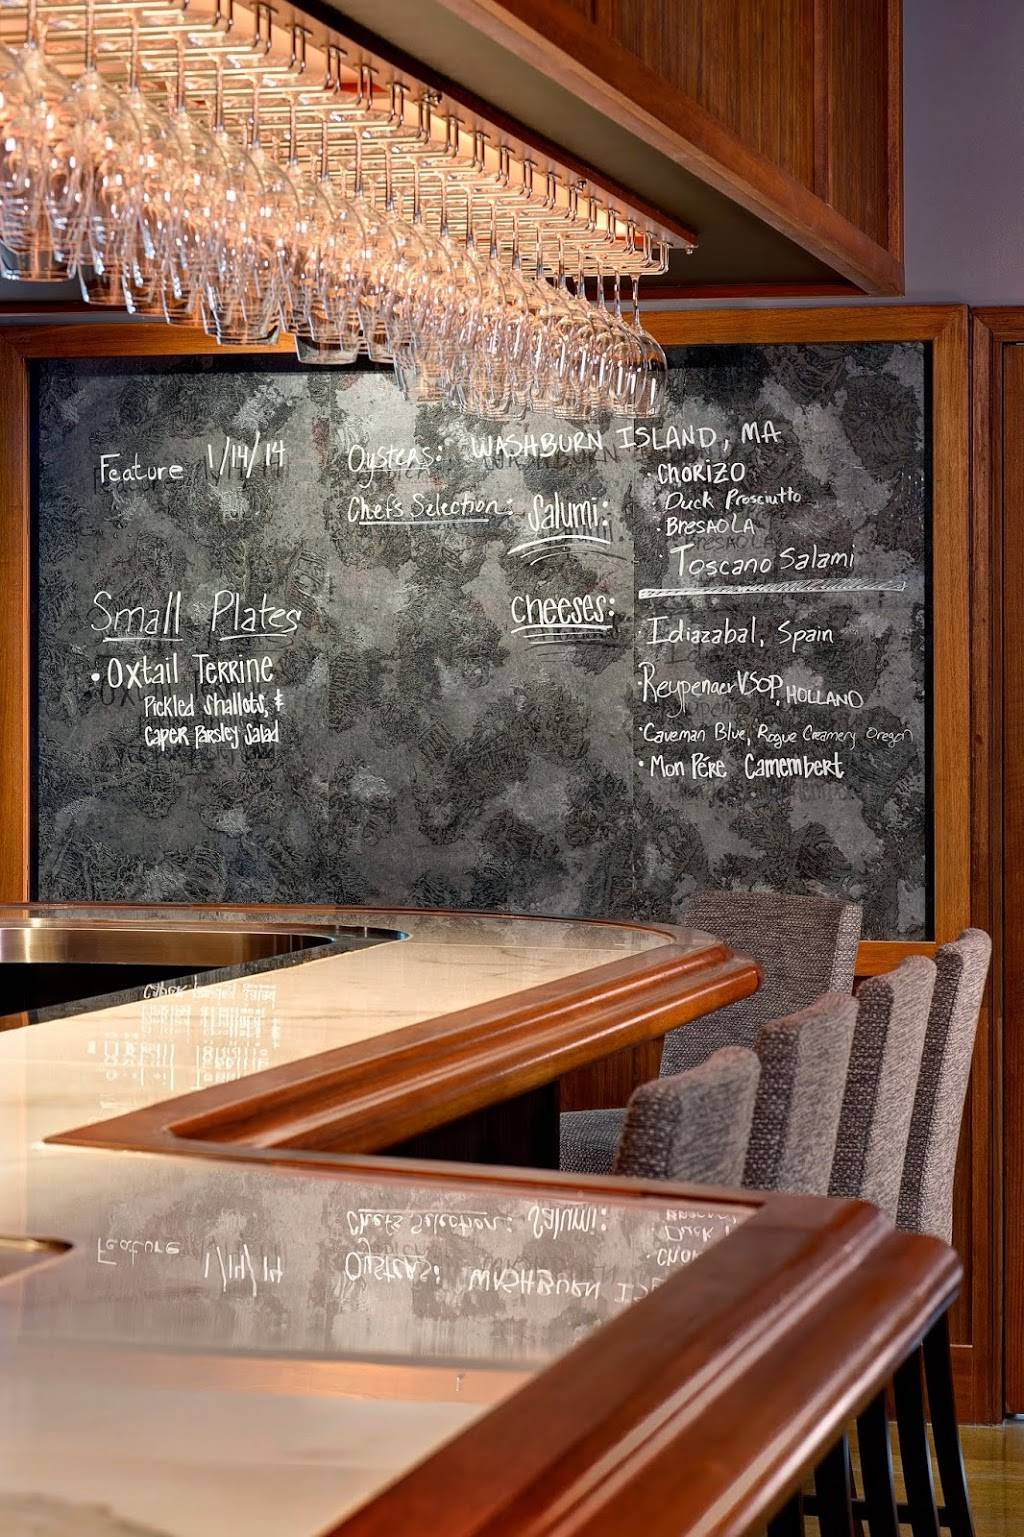 Feature 1/14/14
Small Plates
• Oxtail Terrine
Pickled Shallots, &
Caper Parsley Salad
Oysters: WASHBURN ISLAND, MA
Chef's Selection: Salumi:
• CHORIZO
• Duck Prosciutto
• BresAOLA
Toscano Salami
Cheeses:
• Idiazabal, Spain
• Reypenaer VSOP, HOLLAND
• Caveman Blue, Rogue Creamery Oregon
• Mon Pére Camembert